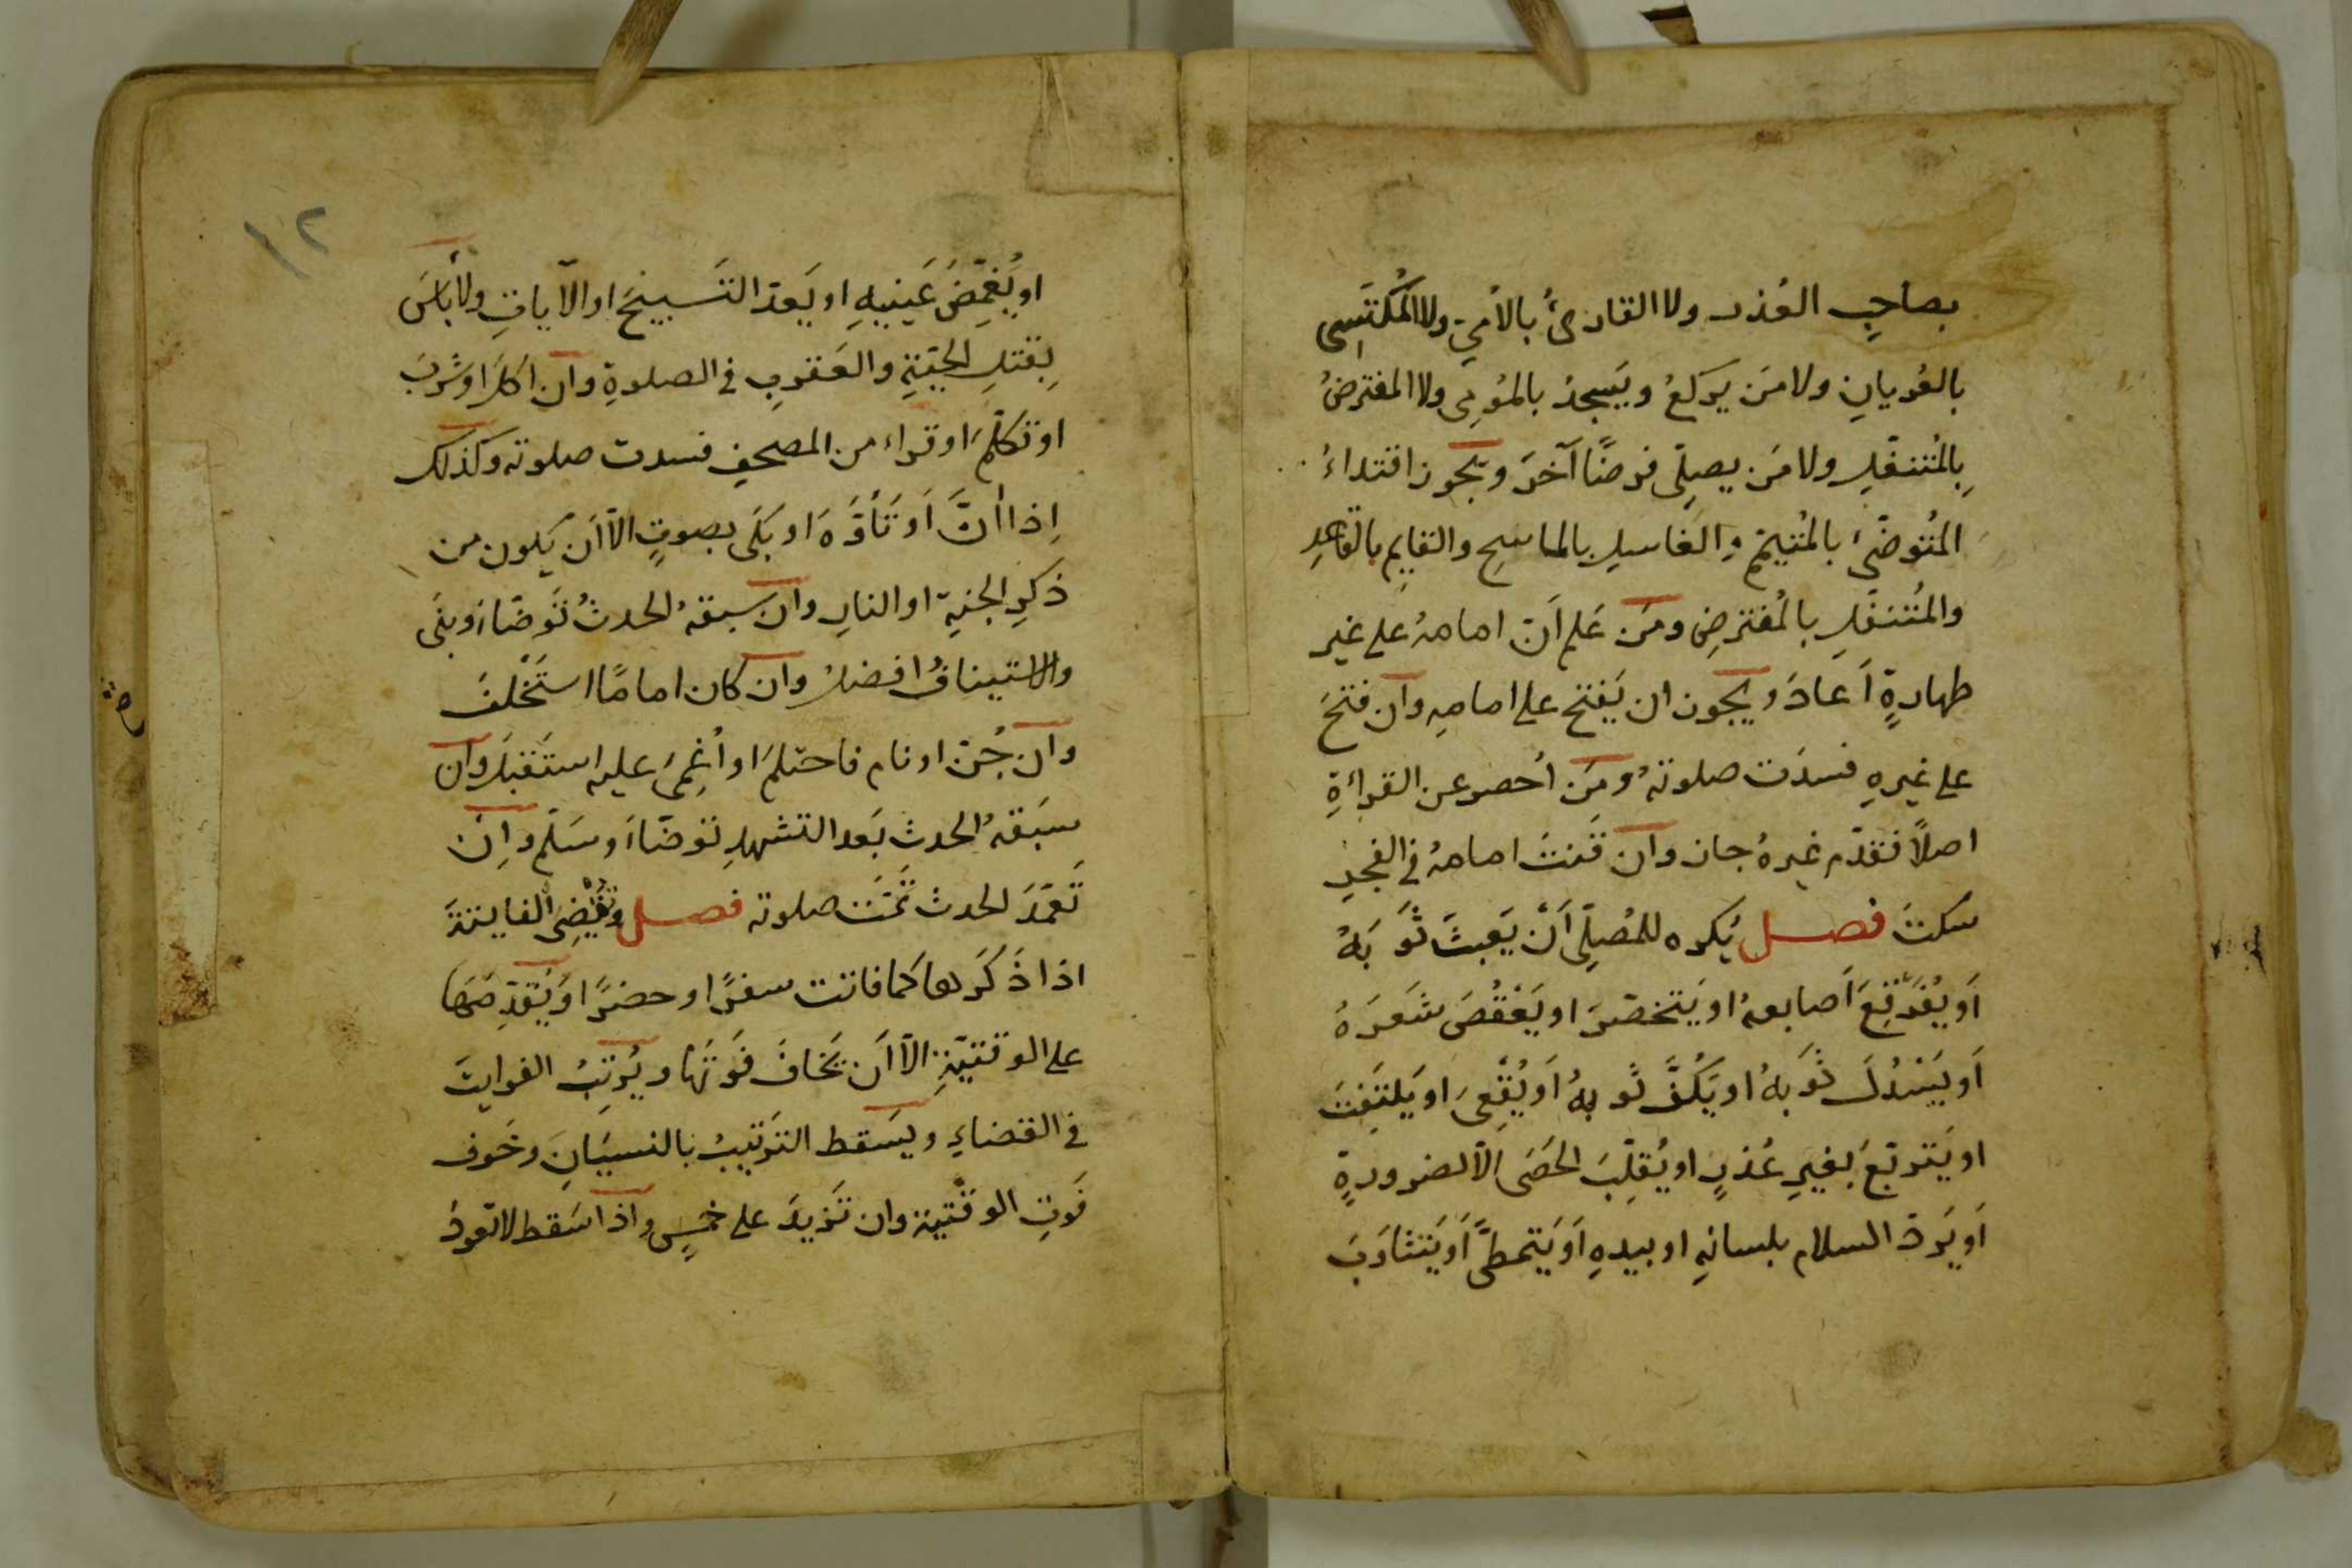 بصاحِبِ العُذر ولا القارىُٔ بالأُمِيّ ولا المُكْتَسِى
بالعُريانِ ولا مَن يركعُ ويَسجدُ بالمُؤمِى ولا المفترضُ
بِالمُتنفّلِ ولا مَن يصلّى فرضًا آخَرَ ويجوز اقتداءُ
المُتُوضّىِٔ بالمُتيمّمِ والغاسِلِ بالماسِحِ والقايِمِ بالقاعِدِ
والمُتنفّلِ بالمُفترضِ ومَن عَلم اَنّ امامهُ على غيرِ
طهارةٍ اَعادَ ويجوز ان يَفتح على امامِهِ وان فتحَ
على غيرِهِ فسدَت صلوتهُ ومَن اُحصر عن القراءةِ
اصلًا فتقدّم غيرهُ جاز وان قَنتَ امامهُ فى الفجرِ
سكتَ فصل يُكره للمُصلِّى اَنْ يَعبثَ ثَوبَهُ
اَو يُفَرقِعَ اَصابعهُ او يَتخصّرَ او يَعْقُصَ شَعَرَهُ
اَو يَسْدُلَ ثَوبهُ او يَكُفَّ ثَوبهُ اَو يُقْعِىَ او يَلتَفِتَ
او يَتربّعَ بِغيرِ عُذرٍ او يُقلِّبَ الحَصَى اِلّا لضرورةٍ
اَو يَردّ السلام بلسانِهِ او بيدِهِ اَو يَتمطَّى اَو يَتثاوَبَ
١٢
او يُغَمِّضَ عَينيهِ او يَعدّ التَسبيحَ او الآياتِ ولا بأسَ
بِقتلِ الحيّةِ والعَقربِ فى الصلوةِ وان اكلَ او شَرِبَ
او تكلّمَ او قراء من المصحفِ فسدت صلوته وكذلك
اِذا أنَّ اَو تَأَوَّهَ او بَكَى بصوتٍ الّا اَن يكون من
ذكرِ الجنةِ او النارِ وان سبقهُ الحدثُ تَوضّاءَ وبنَى
والاستينافُ افضلُ وان كان امامًا استَخْلفَ
وان جُنّ او نام فاحتلمَ او اُغمِىَ عليه استَقبَلَ وان
سبَقهُ الحدث بَعد التشهدِ توضّاءَ وسَلّم واِنْ
تَعَمّدَ الحدث تمّتْ صلوته فصل وتُقْضِى الفايتةَ
اذا ذَكَرها كما فاتت سفرًا او حضرًا وَيُقدِّمَها
على الوقتيّةِ الّا اَن يَخافَ فَوتَها ويُرتِّبُ الفوايتَ
فى القضاءِ ويَسقط التَرتيبُ بالنسيَانِ وخَوف
فَوتِ الوقْتيةِ وان تَزيدَ على خمسٍ واذا سَقط لا تعودُ